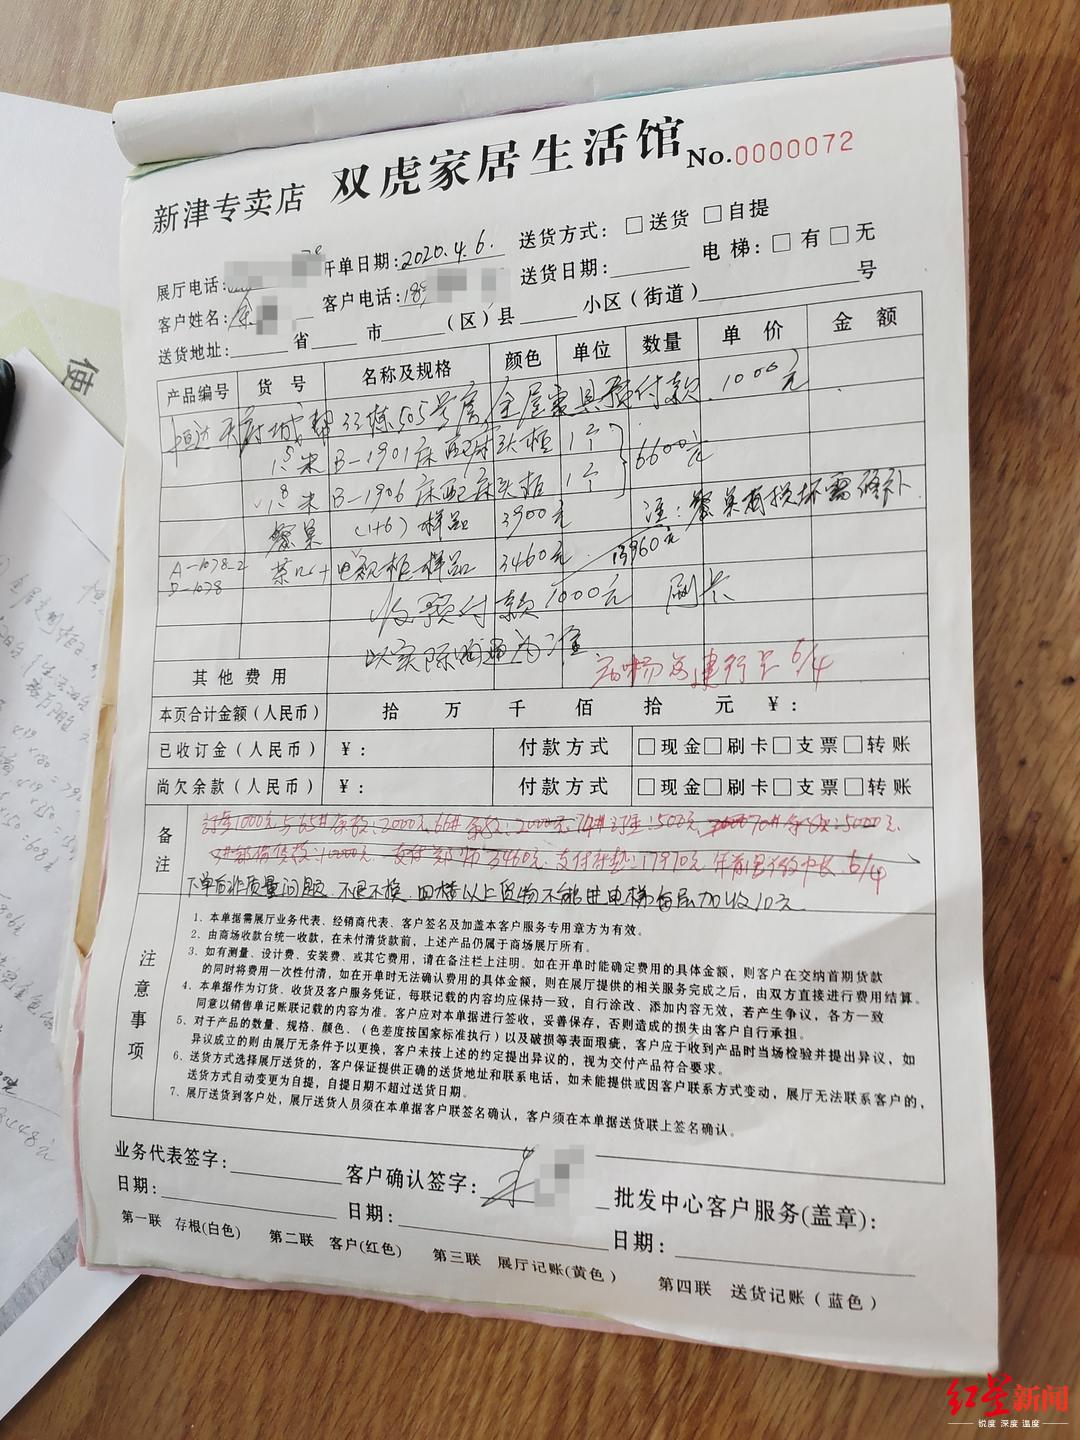 新津专卖店 双虎家居生活馆 No.0000072
展厅电话: 开单日期: 2020.4.6. 送货方式: □送货 □自提
客户姓名: 客户电话: 189 送货日期: 电梯: □有 □无
送货地址: 省 市 (区)县 小区(街道) 号
产品编号 货号 名称及规格 颜色 单位 数量 单价 金额
恒达天府城邦33栋505号房全屋家具预付款 1000元
1.5米 B-1901床配床头柜 1个
1.8米 B-1906床配床头柜 1个 6600元
餐桌 (1+6) 样品 3900元 注:餐桌有损坏需修补
A-1078-2 茶几+电视柜样品 3460元 13960元
D-1078
收预付款1000元 刷卡
以实际 为准
其他费用 建行卡 6/4
本页合计金额(人民币) 拾 万 千 佰 拾 元 ¥:
已收订金(人民币) ¥: 付款方式 □现金□刷卡□支票□转账
尚欠余款(人民币) ¥: 付款方式 □现金□刷卡□支票□转账
备注
订金1000元与65#余款:2000元.66#余款:2000元.74#订金:500元. 70#余款:5000元.
3460元. 17910元. 6/4
下单后非质量问题.不退不换.四楼以上货物不能进电梯每层加收10元
注意事项
1、本单据需展厅业务代表、经销商代表、客户签名及加盖本客户服务专用章方为有效。
2、由商场收款台统一收款,在未付清货款前,上述产品仍属于商场展厅所有。
3、如有测量、设计费、安装费、或其它费用,请在备注栏上注明。如在开单时能确定费用的具体金额,则客户在交纳首期货款
的同时将费用一次性付清,如在开单时无法确认费用的具体金额,则在展厅提供的相关服务完成之后,由双方直接进行费用结算。
4、本单据作为订货、收货及客户服务凭证,每联记载的内容均应保持一致,自行涂改、添加内容无效,若产生争议,各方一致
同意以销售单记账联记载的内容为准。客户应对本单据进行签收,妥善保存,否则造成的损失由客户自行承担。
5、对于产品的数量、规格、颜色、(色差度按国家标准执行)以及破损等表面瑕疵,客户应于收到产品时当场检验并提出异议,如
异议成立的则由展厅无条件予以更换,客户未按上述的约定提出异议的,视为交付产品符合要求。
6、送货方式选择展厅送货的,客户保证提供正确的送货地址和联系电话,如未能提供或因客户联系方式变动,展厅无法联系客户的,
送货方式自动变更为自提,自提日期不超过送货日期。
7、展厅送货到客户处,展厅送货人员须在本单据客户联签名确认,客户须在本单据送货联上签名确认。
业务代表签字: 客户确认签字: 批发中心客户服务(盖章):
日期: 日期: 日期:
第一联 存根(白色) 第二联 客户(红色) 第三联 展厅记账(黄色) 第四联 送货记账(蓝色)
红星新闻
锐度 深度 温度